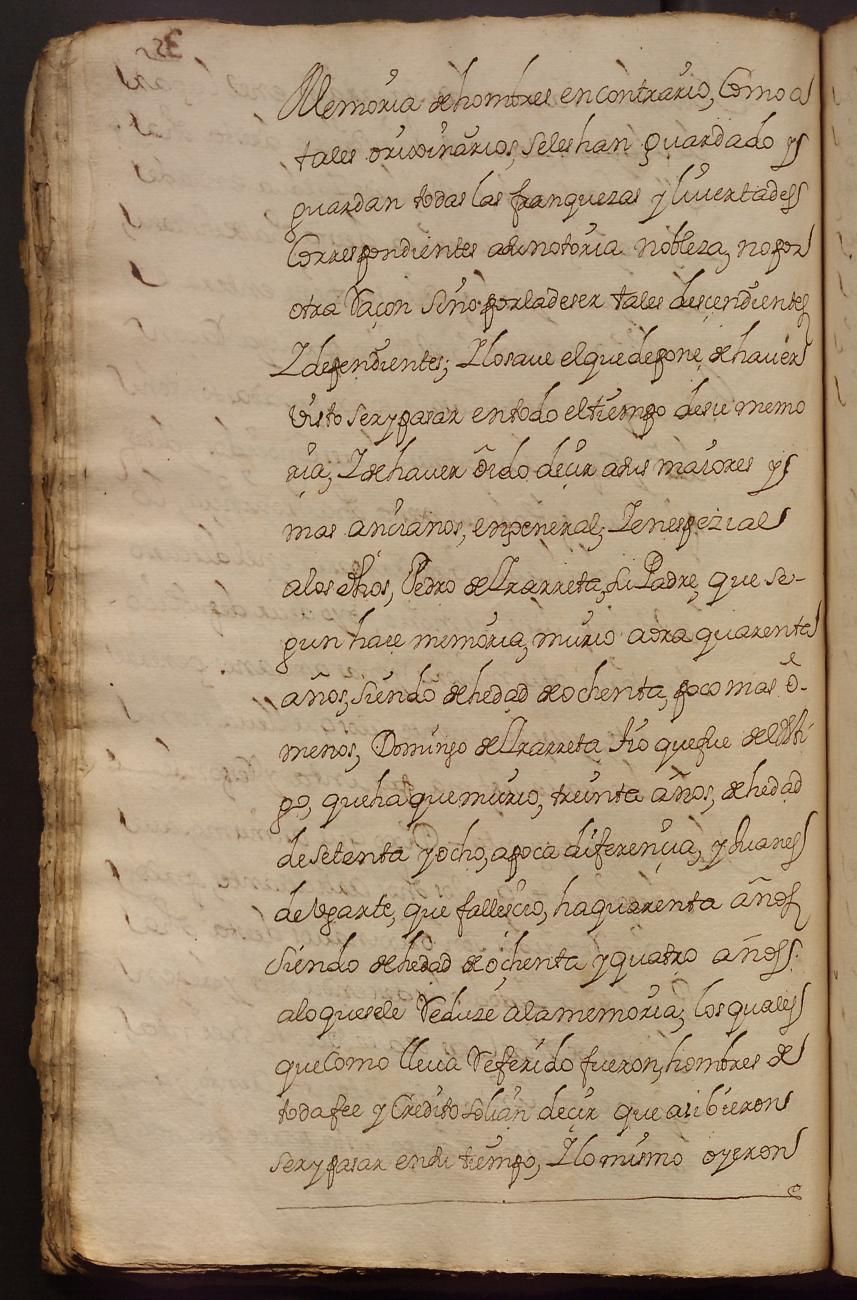 Memoria de hombres en contrario, Como a
tales orixinarios, seles han guardado y
guardan todas las franquezas y livertades
Correspondientes asu notoria nobleza, no por
otra Raçon sino por la de ser tales descendientes
Y dependientes; Y lo save el que depone, de haver
visto ser y pasar en todo el tiempo de su memo
ria, Y de haver oido deçir a sus maiores y
mas ancianos, en general, Y en espezial
a los dhos, Pedro de Yrarreta, su Padre, que se-
gun hace memoria, murio aora quarenta
años, siendo de hedad de ochenta, poco mas ō-
menos, Domingo de Yrarreta tio que fue del testi
go, que ha que murio, treinta años, de hedad
de setenta y ocho, a poca diferençia, y Juanes
de Ugarte, que fallescio, ha quarenta años
siendo de hedad de ochenta y quatro años
a lo que se le Reduze a la memoria, los quales
que Como lleva Referido fueron, hombres de
toda fee y Credito solian deçir que asi bieron
ser y pasar en su tiempo, Y lo mismo oyeron